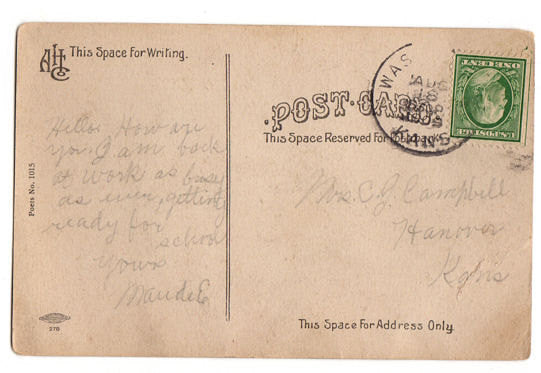 AHCo
This Space for Writing.
Hello. How are
you. I am back
at work as busy
as ever, getting
ready for
school
Yours
Maude E
Poets No. 1015
270
POST-CARD
This Space Reserved For
WAS
KANS
U.S. POSTAGE
ONE CENT
Mrs. C. J. Campbell
Hanover
Kans
This Space For Address Only.